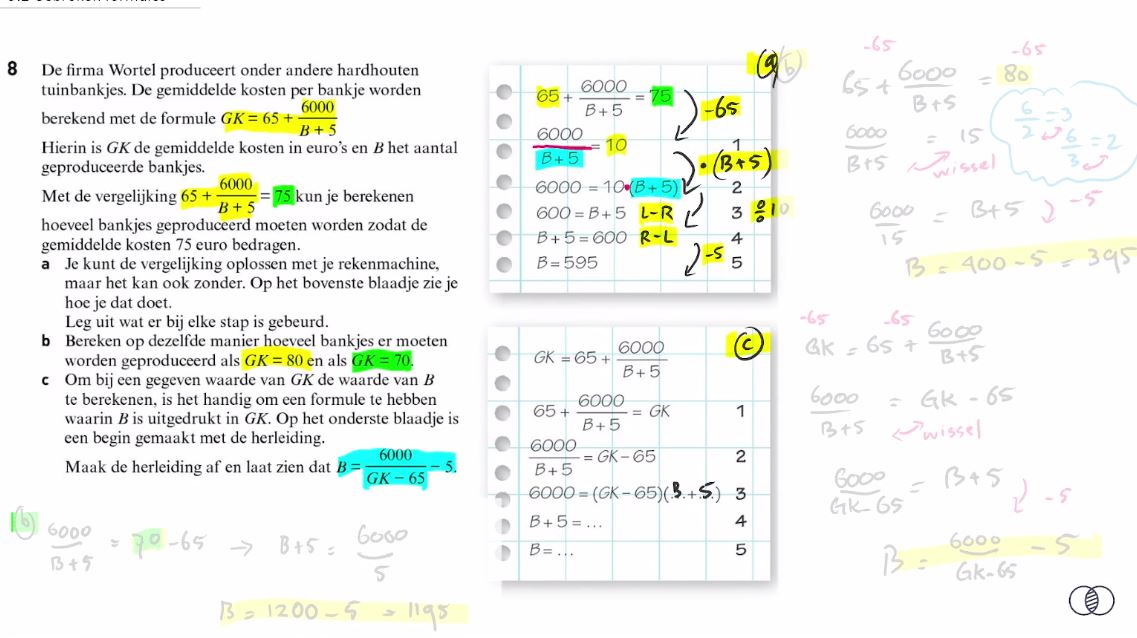 8 De firma Wortel produceert onder andere hardhouten
tuinbankjes. De gemiddelde kosten per bankje worden
berekend met de formule GK = 65 + 6000/(B + 5)
Hierin is GK de gemiddelde kosten in euro's en B het aantal
geproduceerde bankjes.
Met de vergelijking 65 + 6000/(B + 5) = 75 kun je berekenen
hoeveel bankjes geproduceerd moeten worden zodat de
gemiddelde kosten 75 euro bedragen.
a Je kunt de vergelijking oplossen met je rekenmachine,
maar het kan ook zonder. Op het bovenste blaadje zie je
hoe je dat doet.
Leg uit wat er bij elke stap is gebeurd.
b Bereken op dezelfde manier hoeveel bankjes er moeten
worden geproduceerd als GK = 80 en als GK = 70.
c Om bij een gegeven waarde van GK de waarde van B
te berekenen, is het handig om een formule te hebben
waarin B is uitgedrukt in GK. Op het onderste blaadje is
een begin gemaakt met de herleiding.
Maak de herleiding af en laat zien dat B = 6000/(GK − 65) − 5.
b 6000/(B+5) = 70 - 65 → B+5 = 6000/5
B = 1200 - 5 = 1195
a
65 + 6000/(B + 5) = 75
-65
6000/(B + 5) = 10 1
• (B+5)
6000 = 10•(B + 5) 2
600 = B + 5 L-R 3 ÷10
B + 5 = 600 R-L 4
-5
B = 595 5
c
GK = 65 + 6000/(B + 5)
65 + 6000/(B + 5) = GK 1
6000/(B + 5) = GK − 65 2
6000 = (GK − 65)(B + 5) 3
B + 5 = ... 4
B = ... 5
b
-65 -65
65 + 6000/(B+5) = 80
6/2 = 3
6/3 = 2
6000/(B+5) = 15
wissel
6000/15 = B+5 -5
B = 400 - 5 = 395
-65 -65
GK = 65 + 6000/(B+5)
6000/(B+5) = GK - 65
wissel
6000/(GK-65) = B+5
-5
B = 6000/(GK-65) - 5